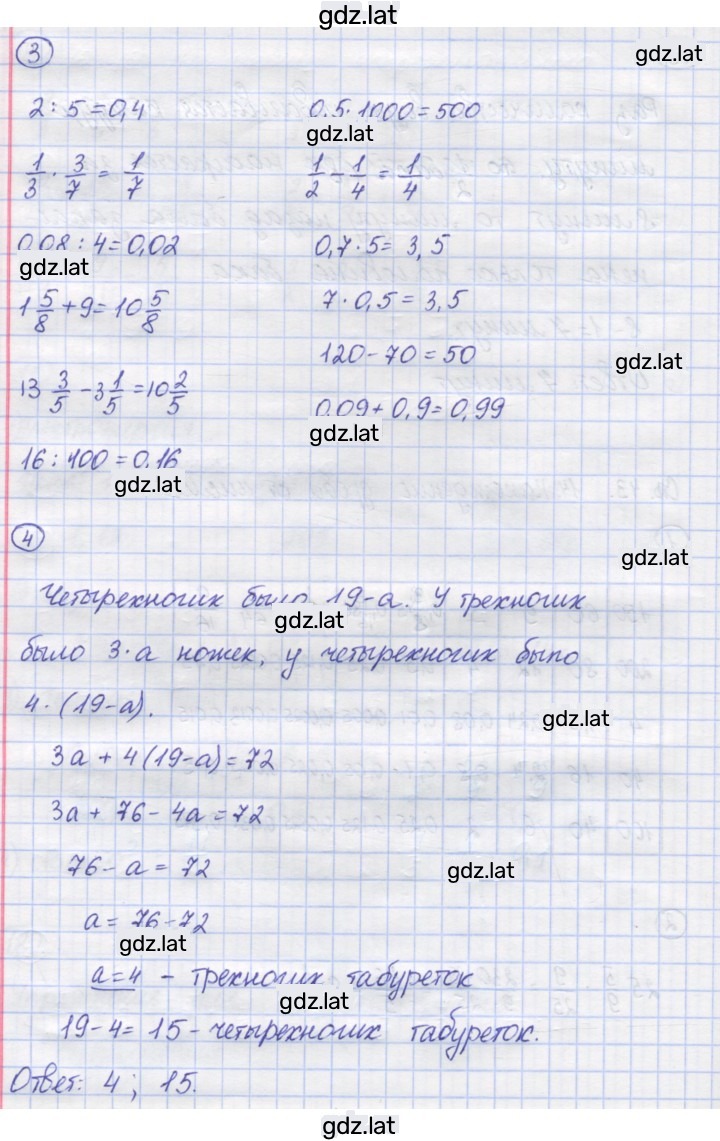 gdz.lat
3
gdz.lat
2 : 5 = 0,4
0,5 · 1000 = 500
gdz.lat
1/3 · 3/7 = 1/7
1/2 - 1/4 = 1/4
0,08 : 4 = 0,02
0,7 · 5 = 3,5
gdz.lat
1 5/8 + 9 = 10 5/8
7 · 0,5 = 3,5
120 - 70 = 50
gdz.lat
13 3/5 - 3 1/5 = 10 2/5
0,09 + 0,9 = 0,99
gdz.lat
16 : 100 = 0,16
gdz.lat
4
gdz.lat
Четырехногих было 19-а. У трехногих
gdz.lat
было 3·а ножек, у четырехногих было
4·(19-а).
gdz.lat
3а + 4(19-а) = 72
3а + 76 - 4а = 72
76 - а = 72
gdz.lat
а = 76-72
gdz.lat
а=4 - трехногих табуреток
gdz.lat
19-4 = 15 - четырехногих табуреток.
Ответ: 4; 15.
gdz.lat